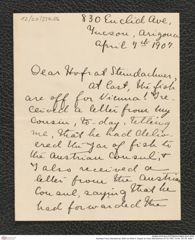 830 Euclid Ave,
Tucson, Arizona
April 7th 1907
Dear Hofrat Steindachner,
At last, the fish
are off for Vienna! I re-
ceived a letter from my
cousin, to-day, telling
me, that he had deliver-
ered the jar of fish to
the Austrian Consul, &
I also received a
letter from the Austrian
Consul, saying that he
had forwarded the